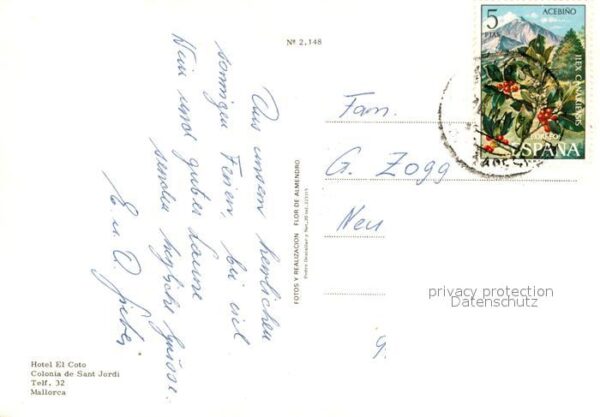 Nº 2.148
Aus unsern herrlichen
sonnigen Ferien, bei viel
Wein und guter Laune
senden herzliche Grüsse
E. u. O.
Hotel El Coto
Colonia de Sant Jordi
Telf. 32
Mallorca
FOTOS Y REALIZACION FLOR DE ALMENDRO
5
PTAS
ACEBIÑO
ILEX CANARIENSIS
CORREOS
ESPAÑA
Fam.
G. Zogg
Neu
privacy protection
Datenschutz
9